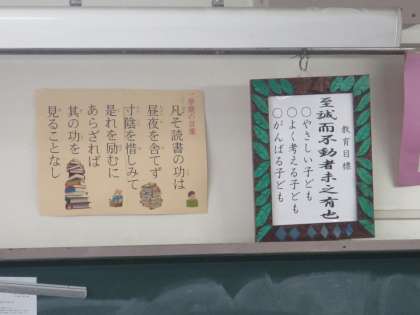 二学期の言葉
凡そ読書の功は
昼夜を舎てず
寸陰を惜しみて
是れを励むに
あらざれば
其の功を
見ることなし
教育目標
至誠而不動者未之有也
○やさしい子ども
○よく考える子ども
○がんばる子ども